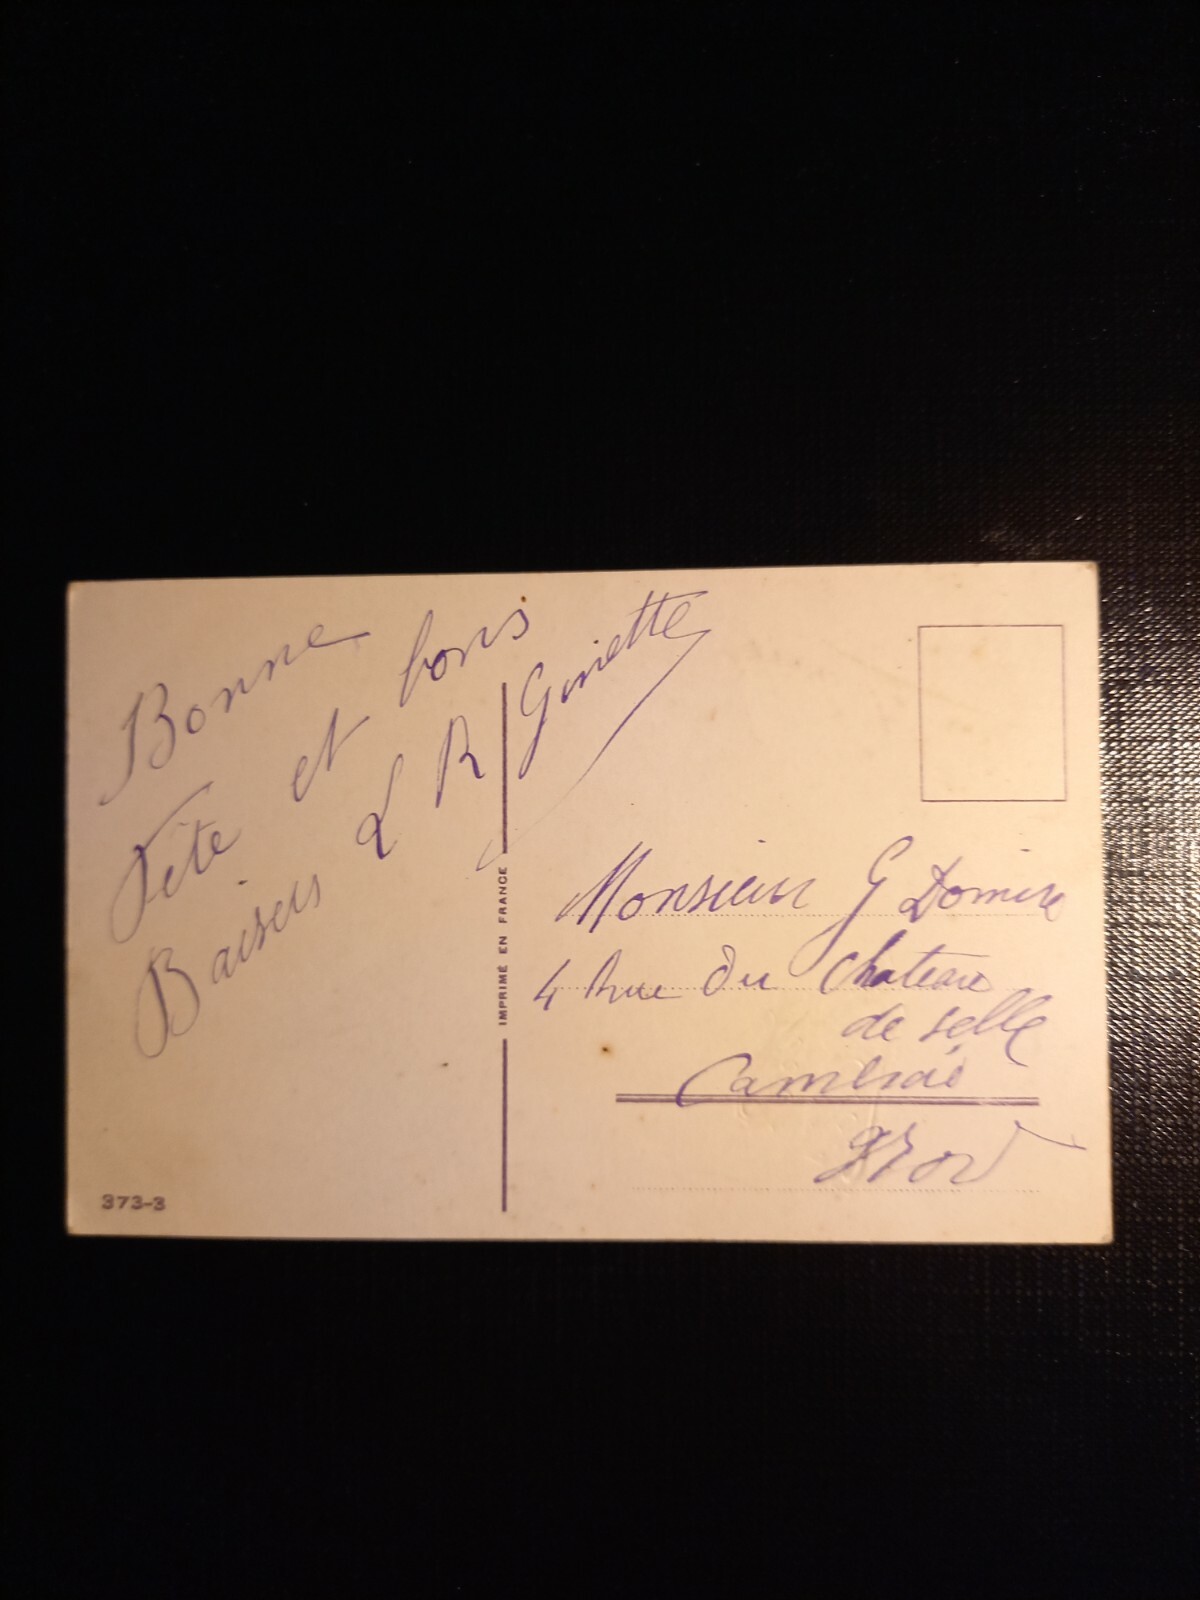 Bonne
Fête et bons
Baisers L R Ginette
IMPRIMÉ EN FRANCE
373-3
Monsieur G Domise
4 Rue du Chateau
de selle
Cambrai
Nord